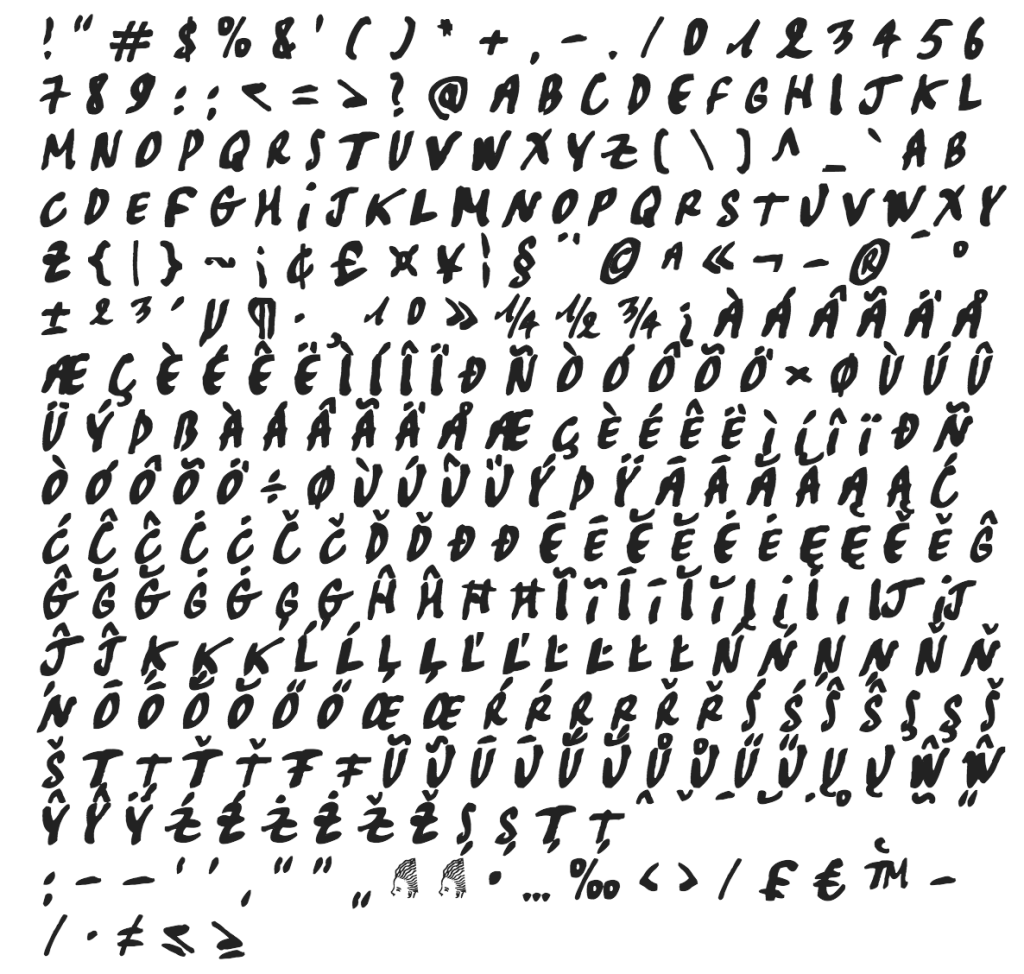 ! " # $ % & ' ( ) * + , - . / 0 1 2 3 4 5 6
7 8 9 : ; < = > ? @ A B C D E F G H I J K L
M N O P Q R S T U V W X Y Z [ \ ] ^ _ ` A B
C D E F G H i J K L M N O P Q R S T U V W X Y
Z { | } ~ ¡ ¢ £ ¤ ¥ ¦ § ¨ © ª « ¬ - ® ¯ °
± ² ³ ´ µ ¶ · ¸ ¹ º » ¼ ½ ¾ ¿ À Á Â Ã Ä Å
Æ Ç È É Ê Ë Ì Í Î Ï Ð Ñ Ò Ó Ô Õ Ö × Ø Ù Ú Û
Ü Ý Þ ß À Á Â Ã Ä Å Æ Ç È É Ê Ë ì í î ï Ð Ñ
Ò Ó Ô Õ Ö ÷ Ø Ù Ú Û Ü Ý Þ Ÿ Ā Ā Ă Ă Ą Ą Ć
Ć Ĉ Ĉ Ċ Ċ Č Č Ď Ď Đ Đ Ē Ē Ĕ Ĕ Ė Ė Ę Ę Ě Ě Ĝ
Ĝ Ğ Ğ Ġ Ġ Ģ Ģ Ĥ Ĥ Ħ Ħ Ĩ ĩ Ī ī Ĭ ĭ Į į İ ı IJ iJ
Ĵ Ĵ Ķ Ķ K Ĺ Ĺ Ļ Ļ Ľ Ľ Ŀ Ŀ Ł Ł Ń Ń Ņ Ņ Ň Ň
ŉ Ō Ō Ŏ Ŏ Ő Ő Œ Œ Ŕ Ŕ Ŗ Ŗ Ř Ř Ś Ś Ŝ Ŝ Ş Ş Š
Š Ţ Ţ Ť Ť Ŧ Ŧ Ũ Ũ Ū Ū Ŭ Ŭ Ů Ů Ű Ű Ų Ų Ŵ Ŵ
Ŷ Ŷ Ÿ Ź Ź Ż Ż Ž Ž Ș Ș Ț Ț ˆ ˇ ˉ ˘ ˙ ˚ ˜ ˝
; – — ‘ ’ ‚ “ ” „ • … ‰ ‹ › ⁄ ₤ € ™ −
∕ ∙ ≠ ≤ ≥